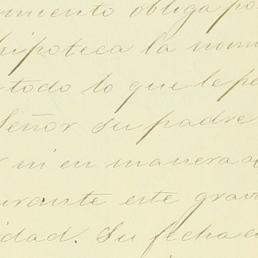 miento obliga po
hipoteca la nomi
todo lo que le pe
Señor su padre
ni en manera a
urante este grav
idad. Su fecha a